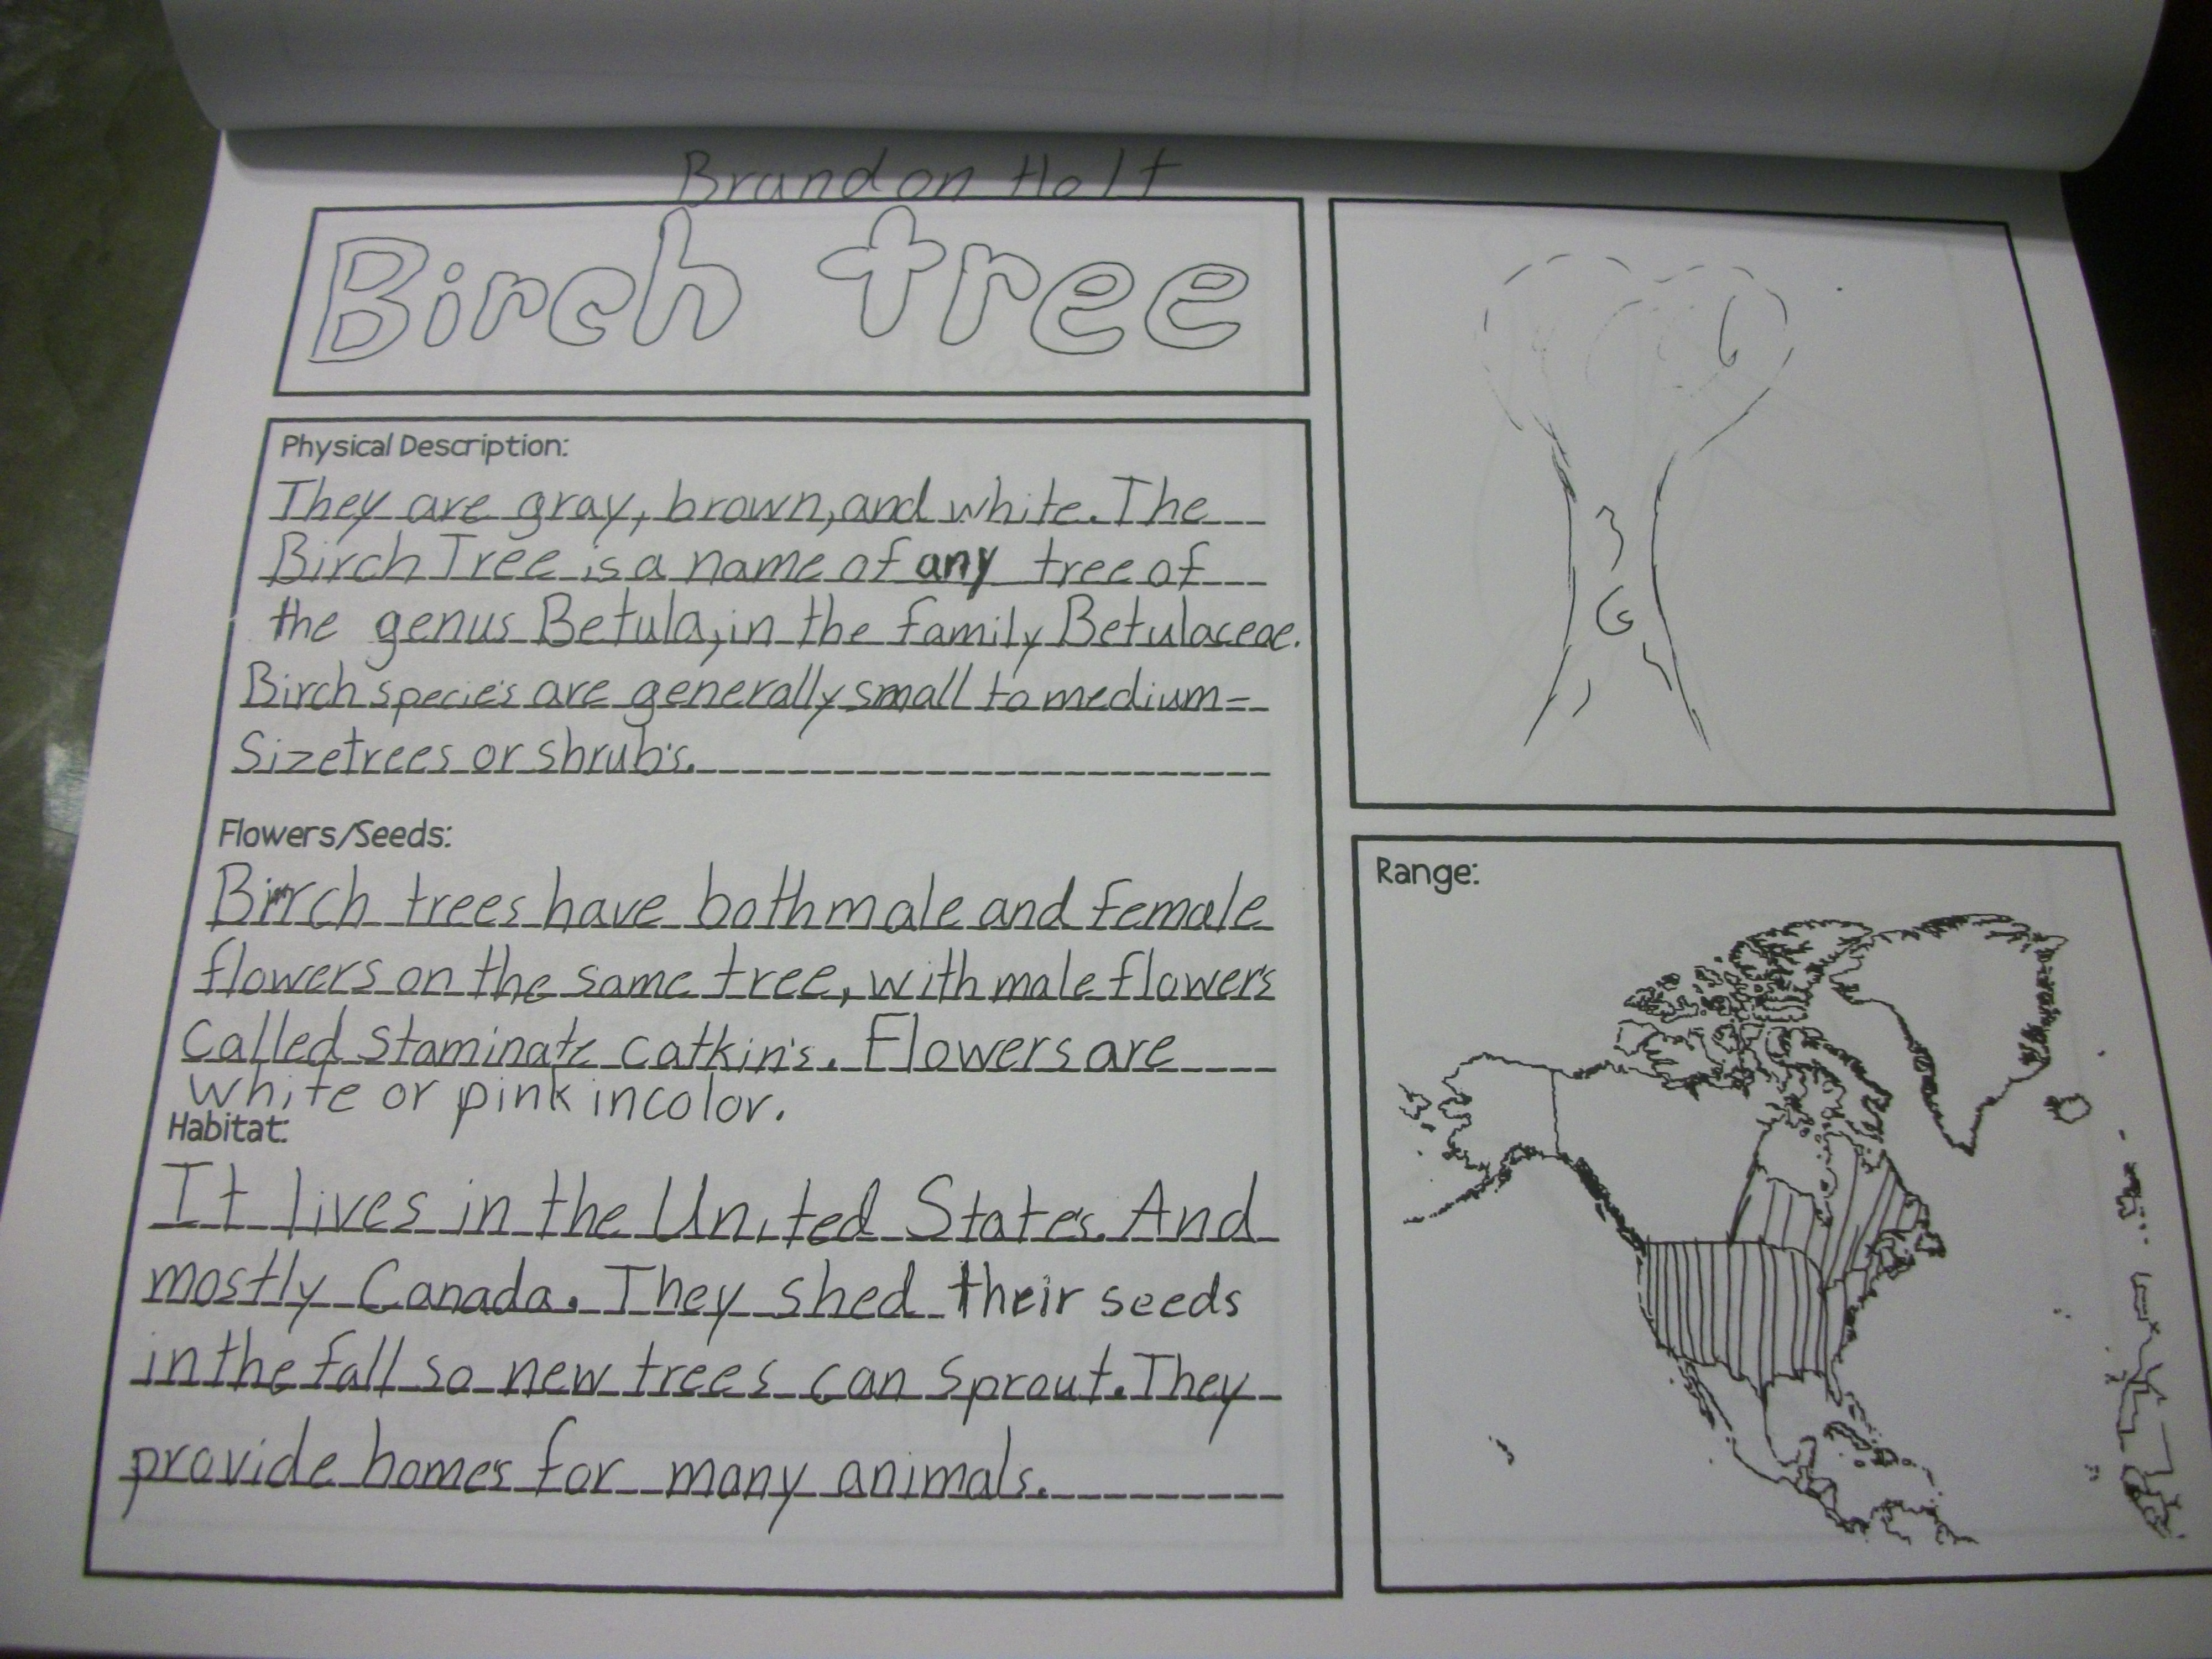 Brandon Holt
Birch tree
Physical Description:
They are gray, brown, and white. The
Birch Tree is a name of any tree of
the genus Betula, in the family Betulaceae.
Birch species are generally small to medium=
Size trees or shrubs.
Flowers/Seeds:
Birch trees have both male and female
flowers on the same tree, with male flowers
Called Staminate Catkins. Flowers are
white or pink in color.
Habitat:
It lives in the United States. And
mostly Canada. They shed their seeds
in the fall so new trees can sprout. They
provide homes for many animals.
Range: